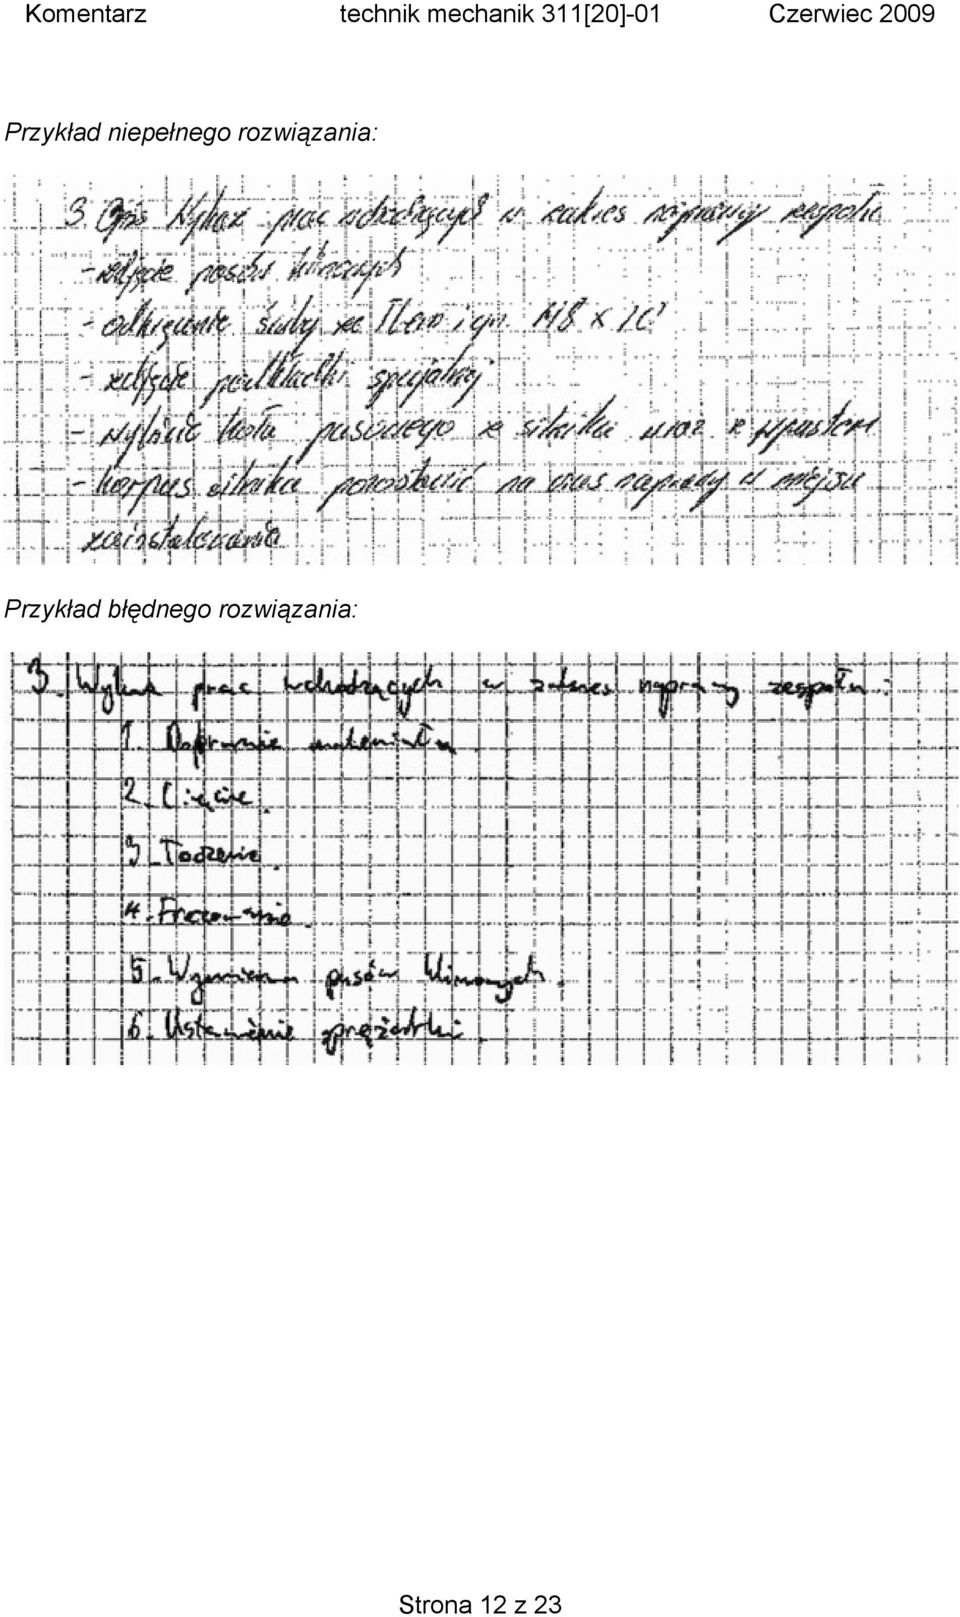 Komentarz technik mechanik 311[20]-01 Czerwiec 2009
Przykład niepełnego rozwiązania:
3. Opis Wykaz prac wchodzących w zakres naprawy zespołu
- zdjęcie pasów klinowych
- odkręcenie śruby ze łbem M8 x
- zdjęcie podkładki specjalnej
- wybicie koła pasowego z silnika wraz z wpustem
- korpus silnika pozostawić na czas naprawy w miejscu
zainstalowania
Przykład błędnego rozwiązania:
3. Wykaz prac wchodzących w zakres naprawy zespołu:
1. materiału
2. Cięcie.
3. Toczenie.
4. Frezowanie.
5. Wymiana pasów klinowych.
6. Ustawienie sprężarki.
Strona 12 z 23